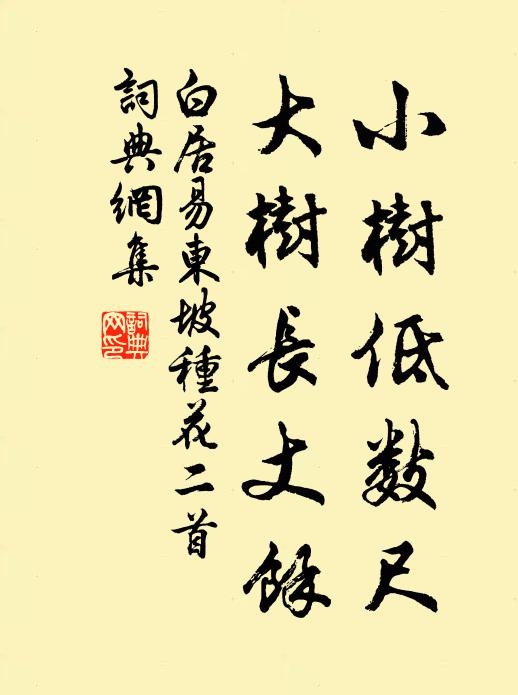 小樹低数尺
大樹長丈餘
白居易東坡種花二首
詞典網集
詞典网印